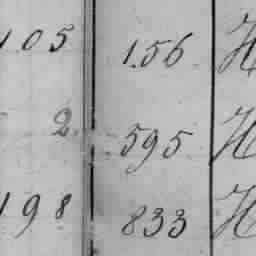 105 156 H
2 595 H
198 833 H